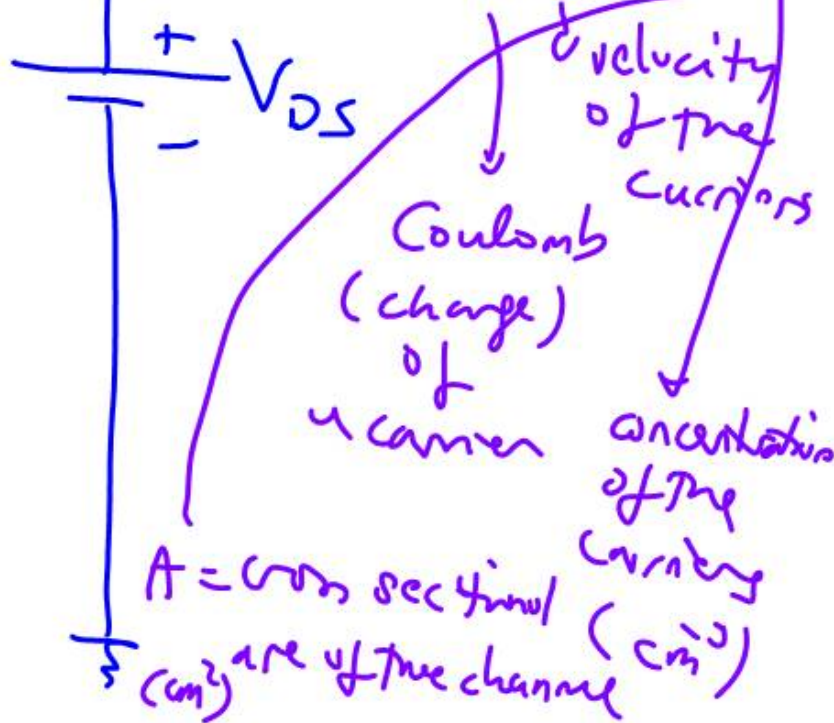 +
V_DS
−
velocity
of the
carriers
Coulomb
(charge)
of
a carrier
concentration
of the
carriers
(cm⁻³)
A = cross sectional
(cm²) are of the channel